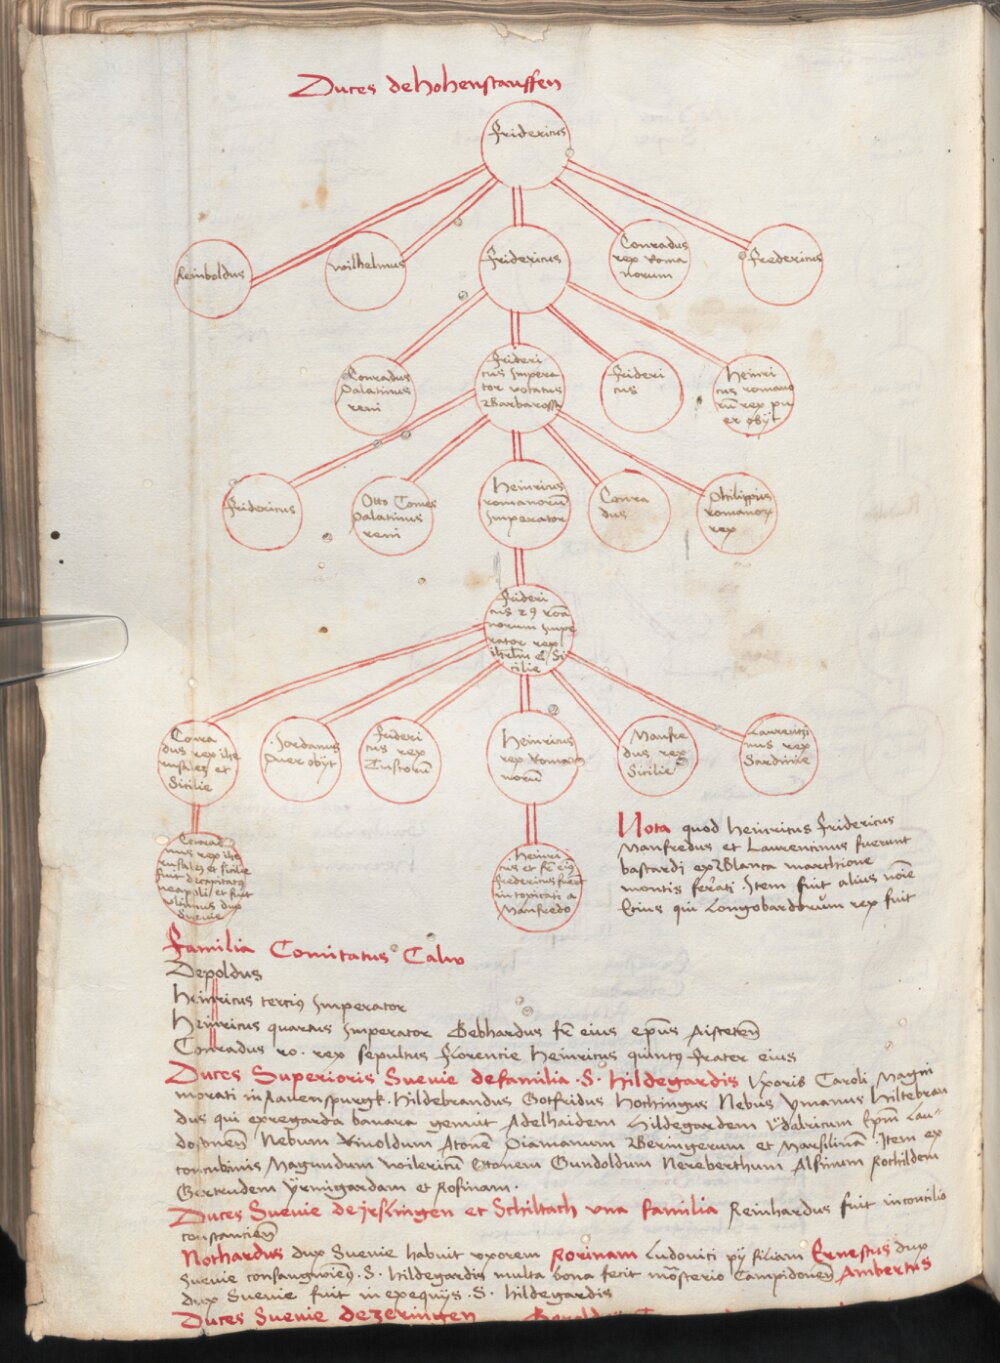 Duces de hohenstauffen
Fridericus
Reinboldus
wilhelmus
Fridericus
Conradus
rex Roma
norum
Fredericus
Conradus
Palatinus
reni
Frideri
cus Impera
tor vocatus
Barbarossa
Frideri
cus
Heinri
cus romano
rū rex pu
er obijt
Fridericus
Otto Comes
Palatinus
reni
Heinricus
romanorū
Imperator
Conra
dus
Philippus
romanorꝝ
rex
Frideri
cus 2ꝯ roā
norum Impe
rator rex
ihrlm et Si
cilie
Conra
dus rex ihe
rusalē et
Sicilie
Jordanus
Puer obijt
Frideri
cus rex
Tuscorū
Heinricus
rex Romano
norū
Manfre
dus rex
Sicilie
Laurenti
nus rex
Sardinie
Conrad
nus rex ihe
rusalē et sicilie
fuit decapitatꝯ
neapoli et fuit
vltimus dux
Sueuie
Heinri
cus et fr̄ eiꝯ
fredericus fuert
intoxicati a
Manfredo
Nota quod Heinricus Fridericus
Manfredus et Laurentinus fuerunt
bastardi ex Blanca marchione
montis ferrati Item fuit alius noīe
Etius qui Longobardorum rex fuit
Familia Comitatus Calw
Depoldus
Heinricus terciꝯ Imperator
Heinricus quartus Imperator Gebhardus fr̄ eius ep̄us Aisteteñ
Conradus ro. rex sepultus Florencie Heinricus quintꝯ frater eius
Duces Superioris Sueuie de familia .S. Hildegardis Vxoris Caroli Magni
morati in Rauenspurgk. Hildebrandus Gotfridus Hochingus Nebus Ymanus Hiltebran
dus qui ex regarda bauara genuit Adelhaidem Hildegardem Vdalricum Ep̄m Lau
Nebum Atonē Beringerum et Marsilinā. Item ex
concubinis Magundum wilericū Ottonem Gundoldum Nereberthum Alsinum Rothildem
Gertrudem Yrmigardam et Rosinam.
Duces Sueuie de et Schiltach vna familia Reinhardus fuit in concilio
constancieñ
Nothardus dux Sueuie habuit vxorem Rorinam Ludouici pij filiam Ernestus dux
Sueuie consangwineꝯ .S. Hildegardis multa bona fecit mōsterio Campidoneñ Ambertus
dux Sueuie fuit in exequijs .S. Hildegardis
Duces Sueuie de zeringen